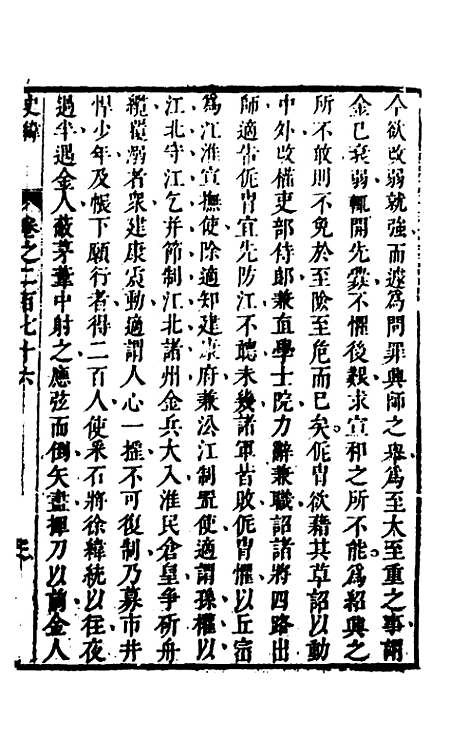 今欲改弱就強而遽為問罪興師之舉為至大至重之事謂
金已衰弱輒開先釁不懼後艱求宣和之所不能為紹興之
所不敢則不免於至險至危而已矣侂冑欲藉其草詔以動
中外改權吏部侍郎兼直學士院力辭兼職詔諸將四路出
師適告侂冑宜先防江不聽未幾諸軍皆敗侂冑懼以丘崈
為江淮宣撫使除適知建康府兼沿江制置使適謂孫權以
江北守江乞并節制江北諸州金兵大入淮民倉皇爭斫舟
纜覆溺者衆建康震動適謂人心一搖不可復制乃募市井
悍少年及帳下願行者得二百人使采石將徐緯統以往夜
過半遇金人蔽茅葦中射之應弦而倒矢盡揮刀以前金人
史緯
卷之二百七十六